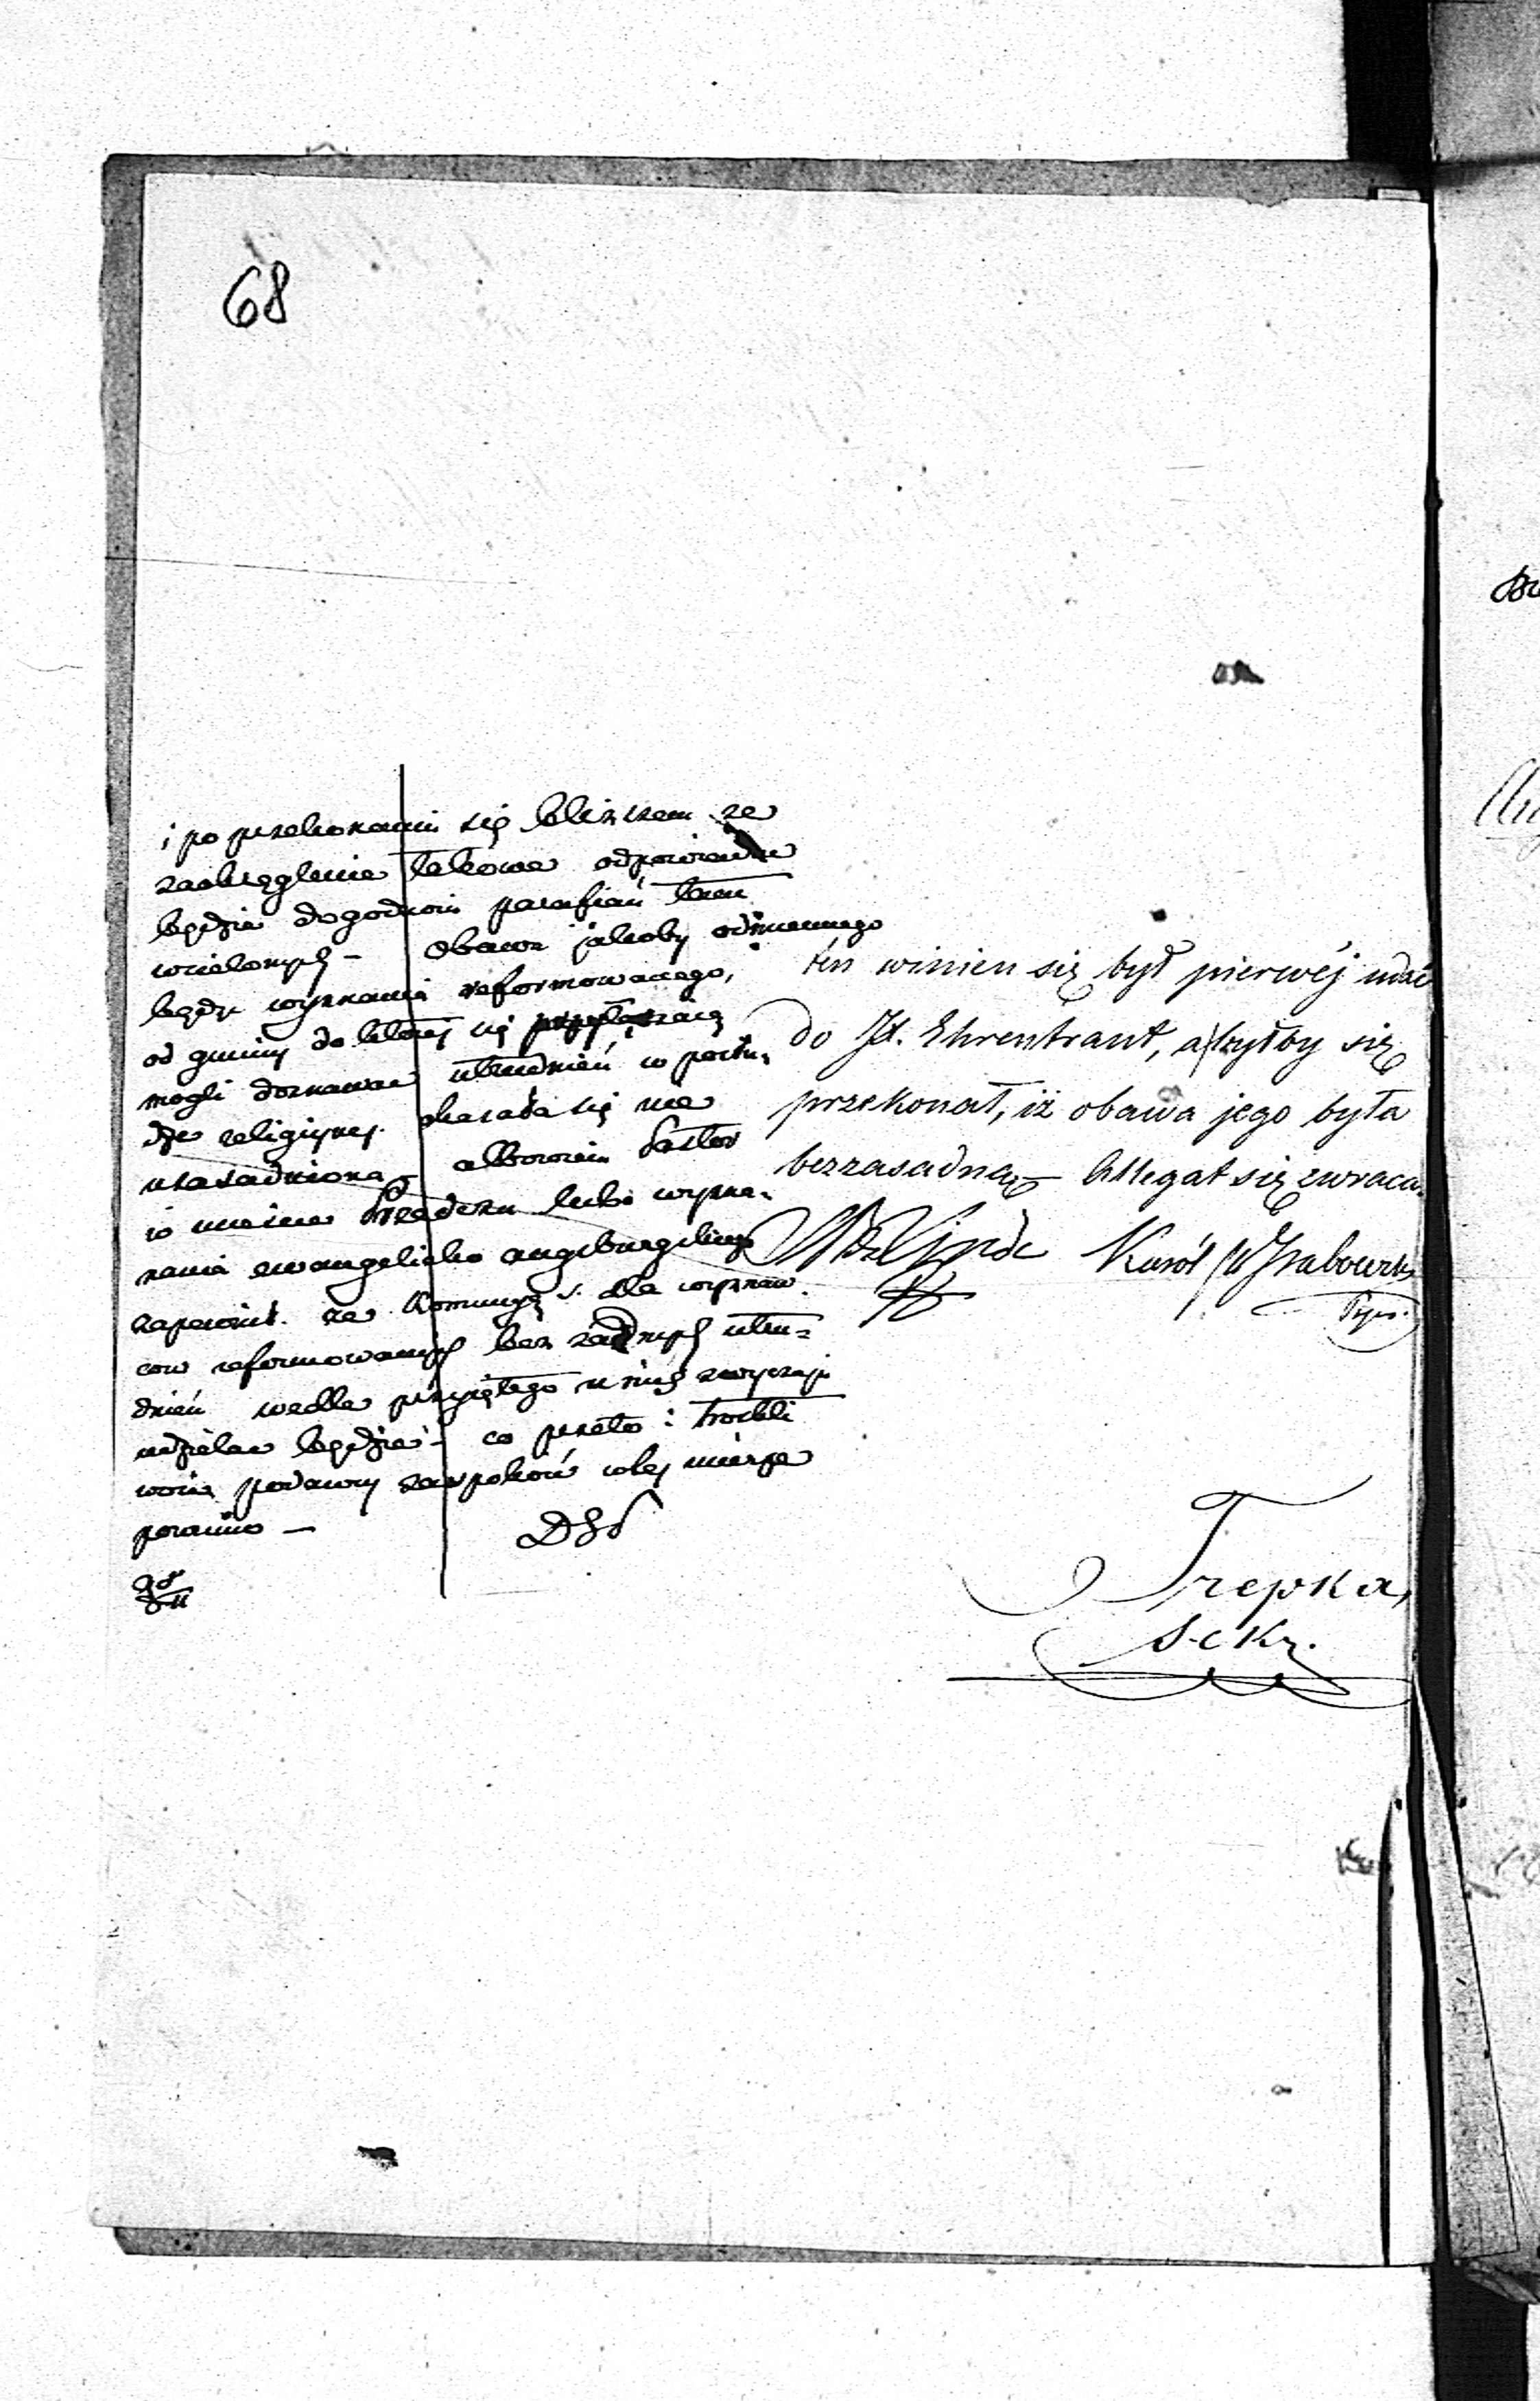 68
i po przekonaniu się bliższem że
zaokrąglenie takowe odpowiednie
będzie dogodnosci parafian tem
wcielonych – Obawa jakoby odmiennego
będąc wyznania reformowanego,
od gminy do której się przyłączają
mogli doznawac utrudnień w posłu-
dze religijnej. okazała się nie
uzasadnioną – albowiem Pastor
w mieście lubo wyzna-
nania ewangelicko augsburgskiego
zapewnił że Kommunyą s. dla wyznaw
cow reformowanych bez żadnych utru-
dnień wedle przyjętego u nich zwyczaju
udzielac będzie – co przeto i troskli
wosc podawcy zaspokoić w tej mierze
powinno –
ten winien się był pierwéj udać
do Jd. Ehrentraut, a byłby się
przekonał, iż obawa jego była
bezzasadną – Allegat się zwraca.
Karól Grabowski
Prezes.
Trepka,
Sekr.